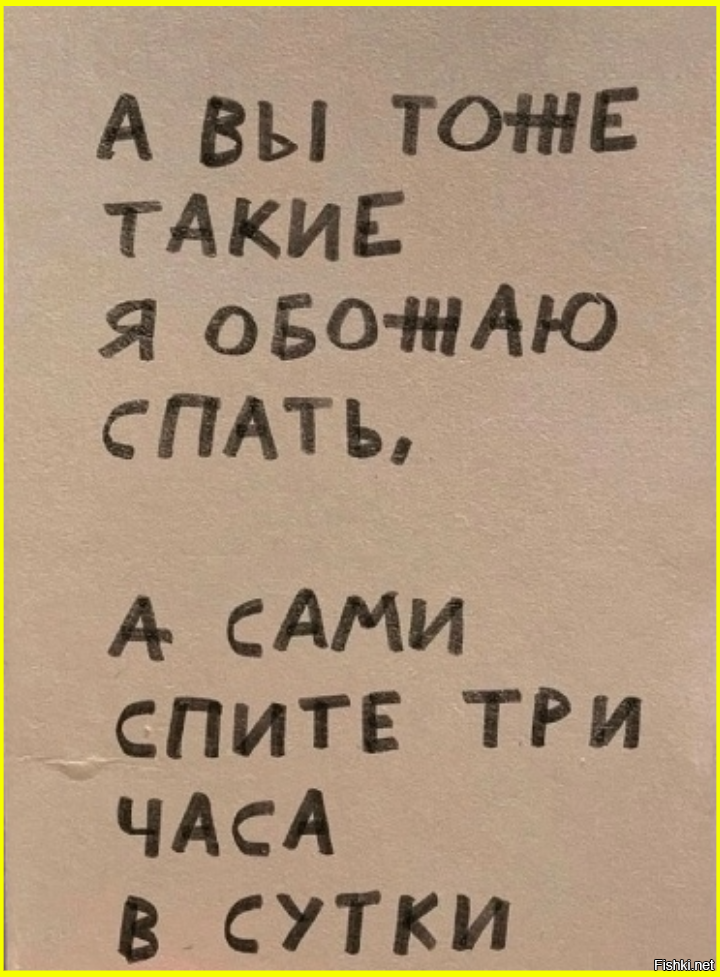 А ВЫ ТОЖЕ
ТАКИЕ
Я ОБОЖАЮ
СПАТЬ,
А САМИ
СПИТЕ ТРИ
ЧАСА
В СУТКИ
Fishki.net